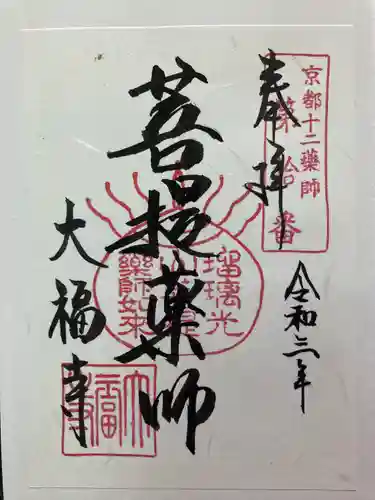 京都十二藥師
第拾番
奉拝
令和三年
菩提薬師
瑠璃光
藥師如来
大福寺
大福寺